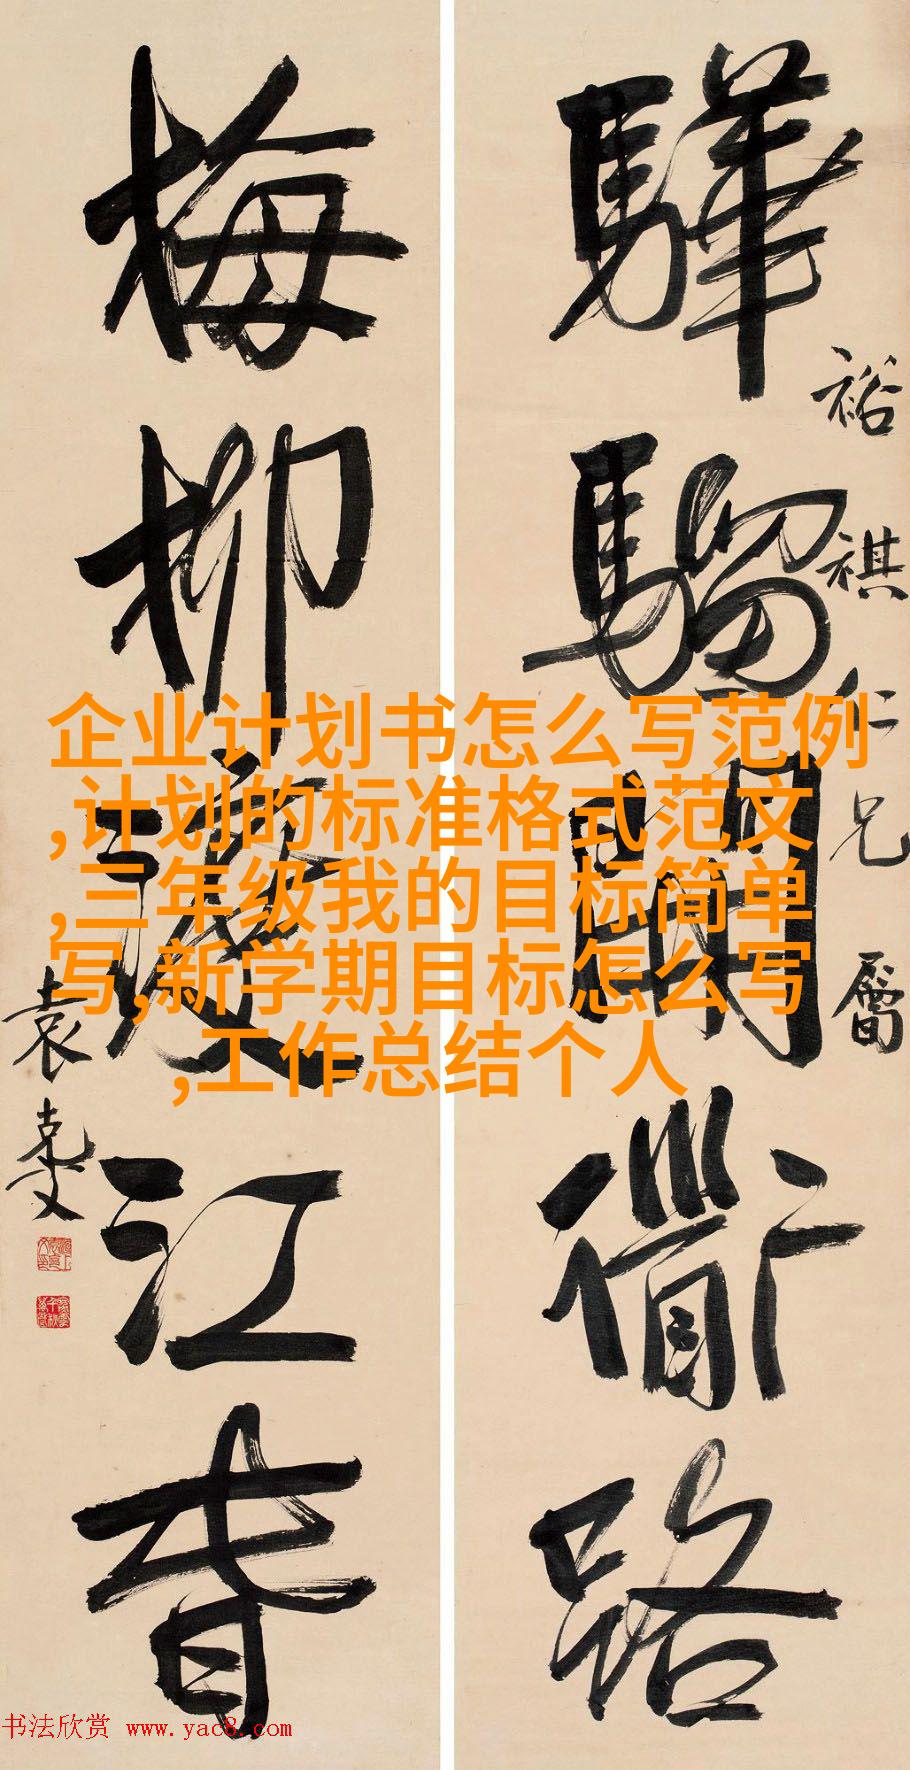 驊騮開衜路
裕祺仁兄屬
梅柳渡江春
袁克文
企业计划书怎么写范例
,计划的标准格式范文
,三年级我的目标简单
写,新学期目标怎么写
,工作总结个人
书法欣赏 www.yac8.com